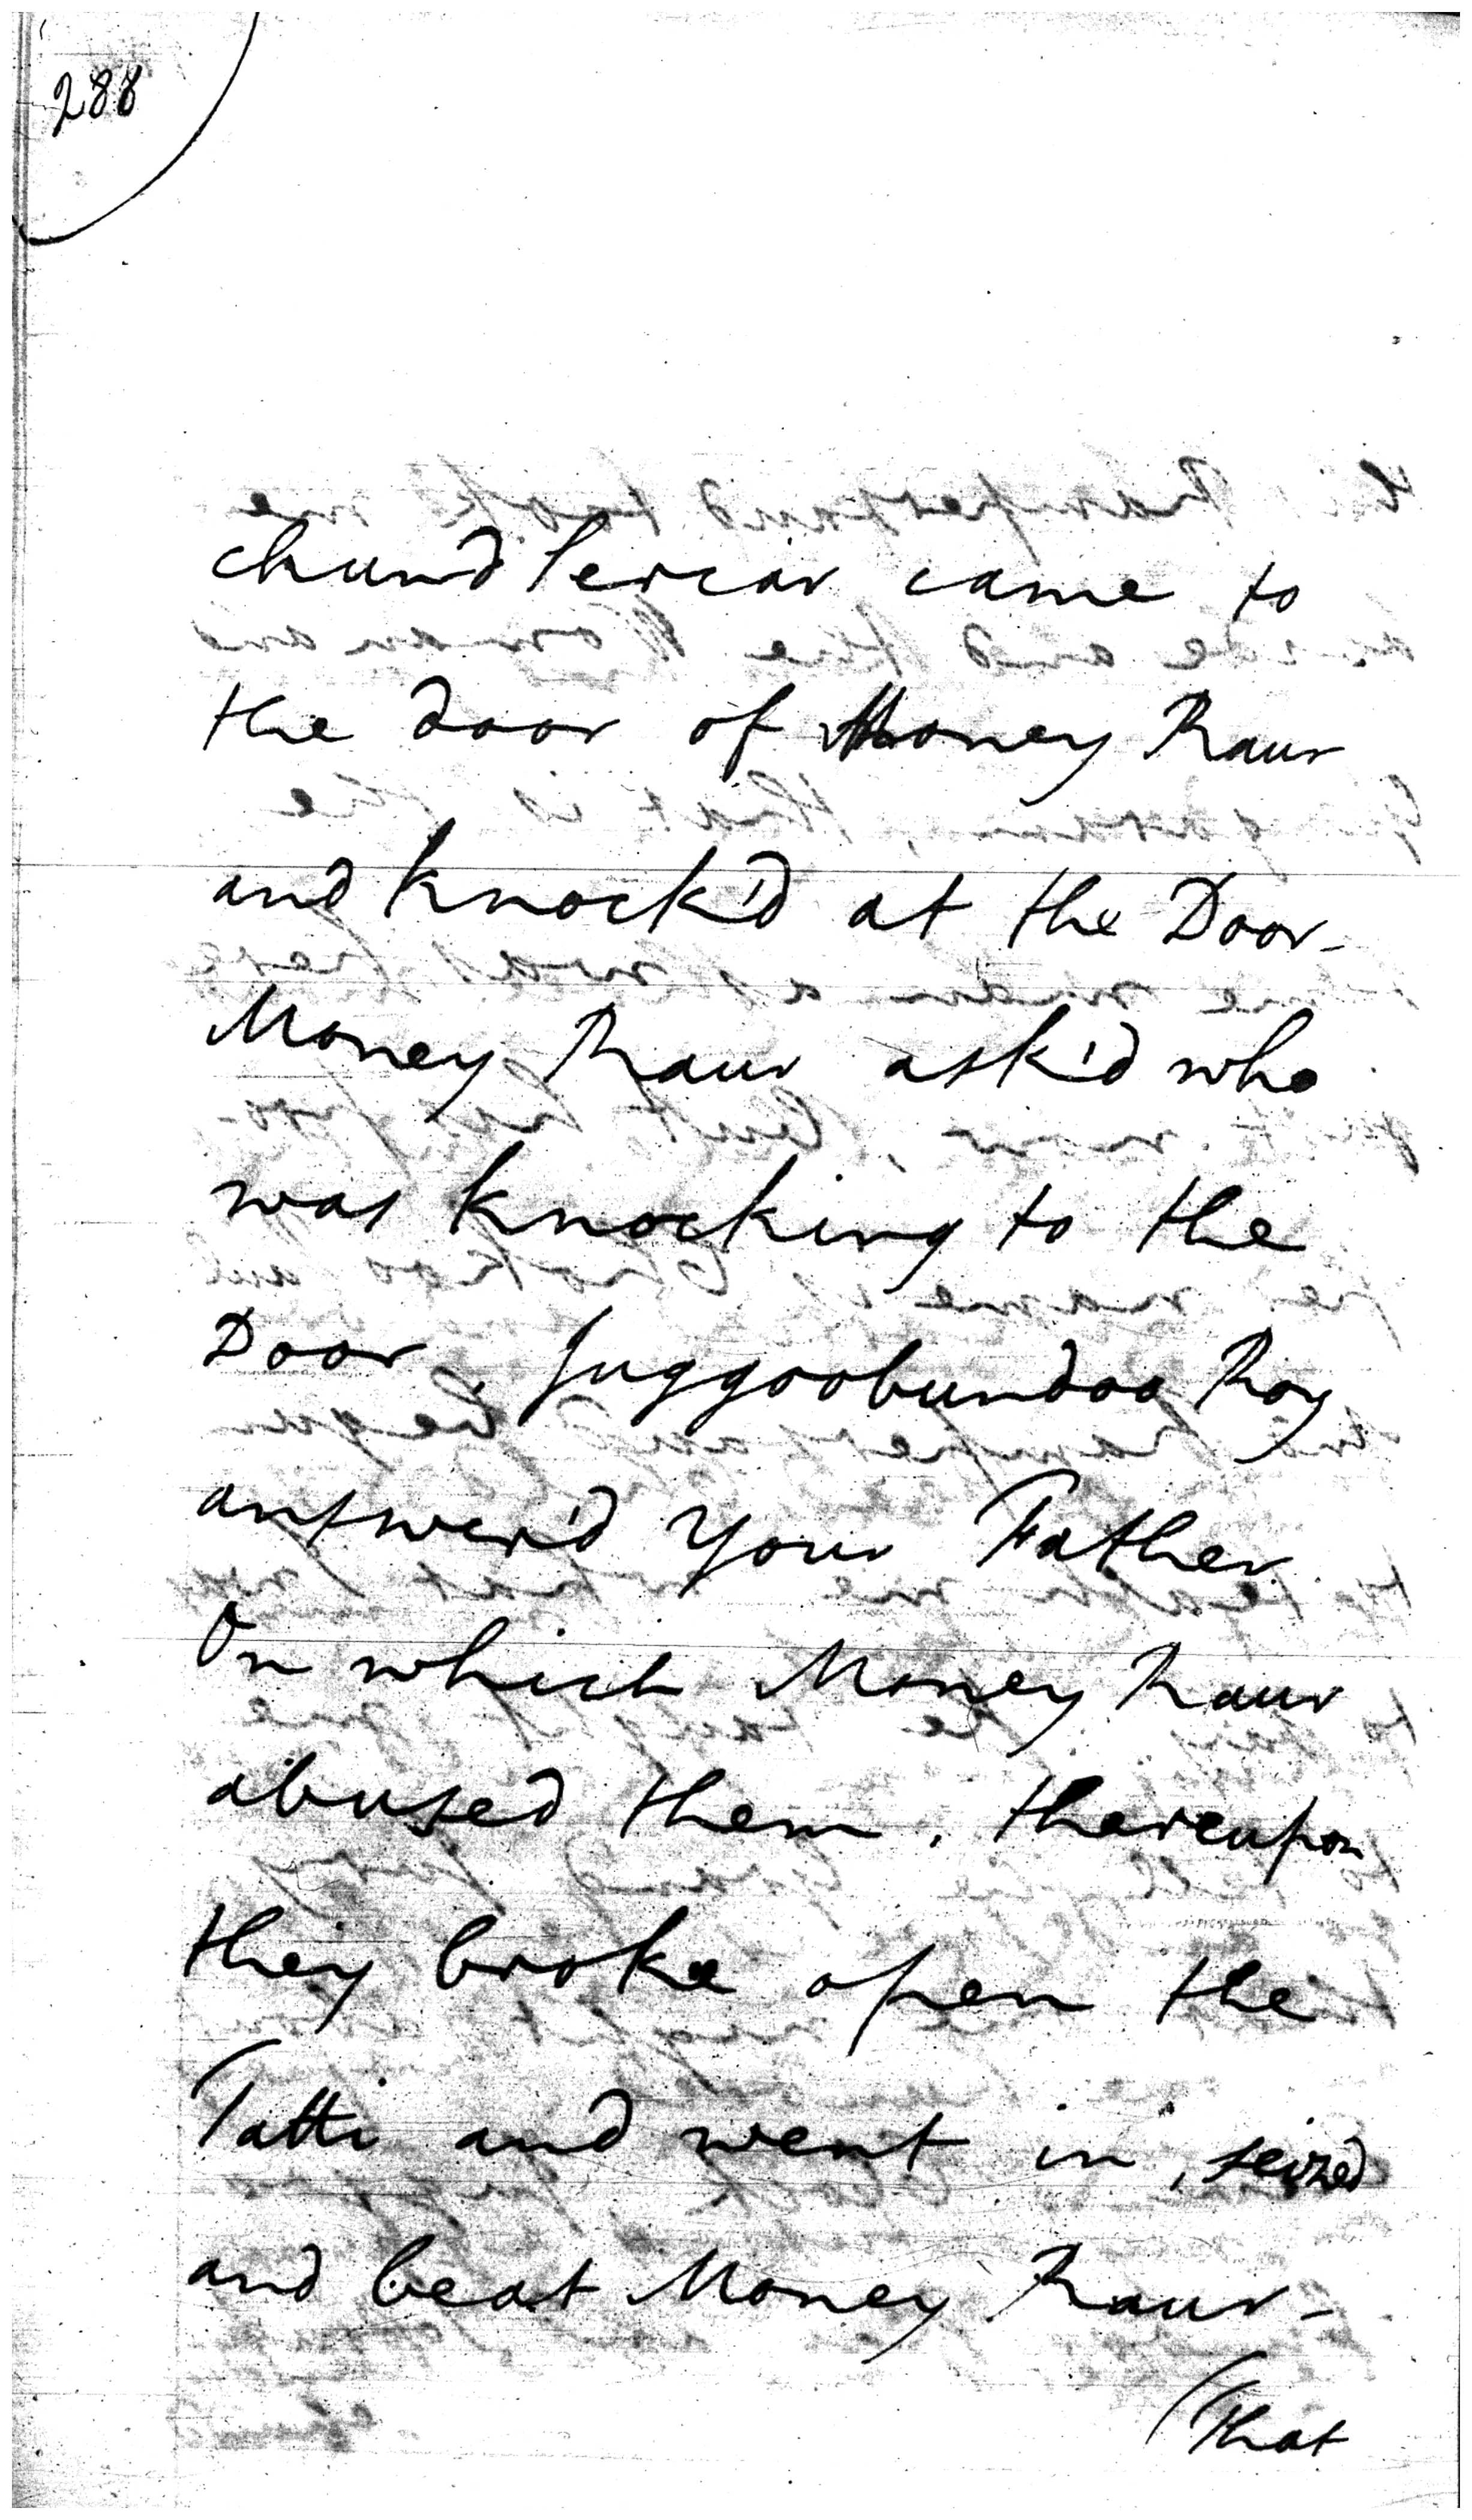 288
chund Sercar came to
the door of Money Raur
and knock'd at the Door-
Money Raur ask'd who
was knocking to the
Door, Juggoobundoo Roy
answer'd your Father
On which Money Raur
abused them. thereupon
they broke open the
Tatti and went in, seized
and beat Money Raur-
That